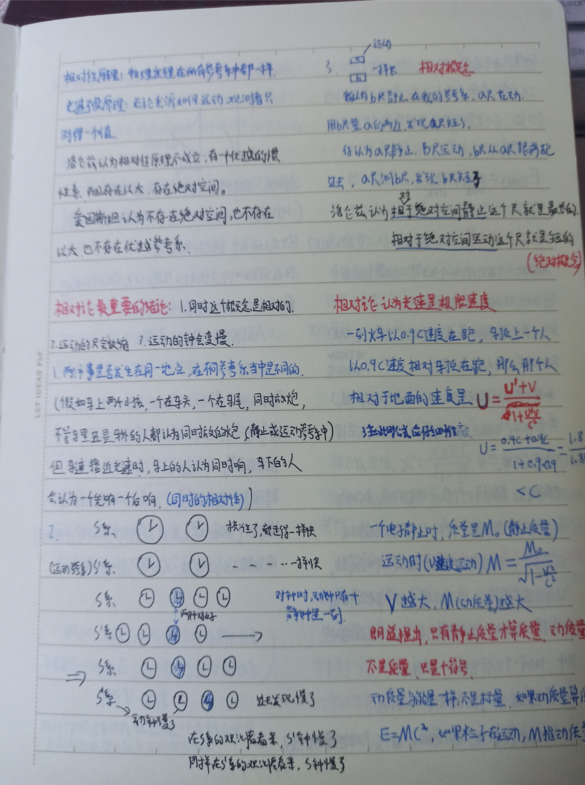 相对性原理：物理定理在所有参考系中都一样.
光速不变原理：无论光源如何运动,观测者只
对得一个值
洛仑兹认为相对性原理不成立,有一个优越的惯
性系,即存在以太,存在绝对空间.
爱因斯坦认为不存在绝对空间,也不存在
以太,也不存在优越参考系.
相对论最重要的结论：1.同时这个概念是相对的.
2.运动的尺会收缩 3.运动的钟会变慢.
1.两个事是否发生在同一地点,在不同参考系当中是不同的.
(假如车上两个小孩,一个在车头,一个在车尾,同时放炮,
不管车里还是车外的人都认为同时放的炮(静止或运动参考系中)
但车速接近光速时,车上的人认为同时响,车下的人
会认为一个先响一个后响.(同时的相对性))
2. S系
一样快
(运动参考系)S'系 一样快
S系
对钟时,
S'系
S系
S系 过去发现慢了
动钟慢了
在S系的观测者看来,S'钟慢了
同样在S'系的观测者看来,S钟慢了
3. 运动
一样长 相对概念
我认为b尺静止,在我的参考系,a尺在动.
用b尺量a
你认为a尺静止,B尺运动,
过去,a尺测b尺,发现b尺短了
洛仑兹认为相对于绝对空间静止这个尺就是最长的.
对
相对于绝对空间运动这个尺就是短的
(绝对概念)
相对论认为光速是极限速度
一列火车以0.9C速度在跑,车顶上一个人
以0.9C速度相对车顶在跑,那么那个人
相对于地面的速度是 U=
U'+V
U= 0.9c+0.9c
1+0.9×0.9
= 1.8
<C
一个电子静止时,质量是M₀(静止质量)
运动时 M= M₀
V越大,M(动质量)越大
只有静止质量才算质量,动质量
不是质量,只是个符号.
动质量与能量一样,不是质量.如果动质量
E=MC²,如果粒子在运动,M指动质
LET IDEAS FLY